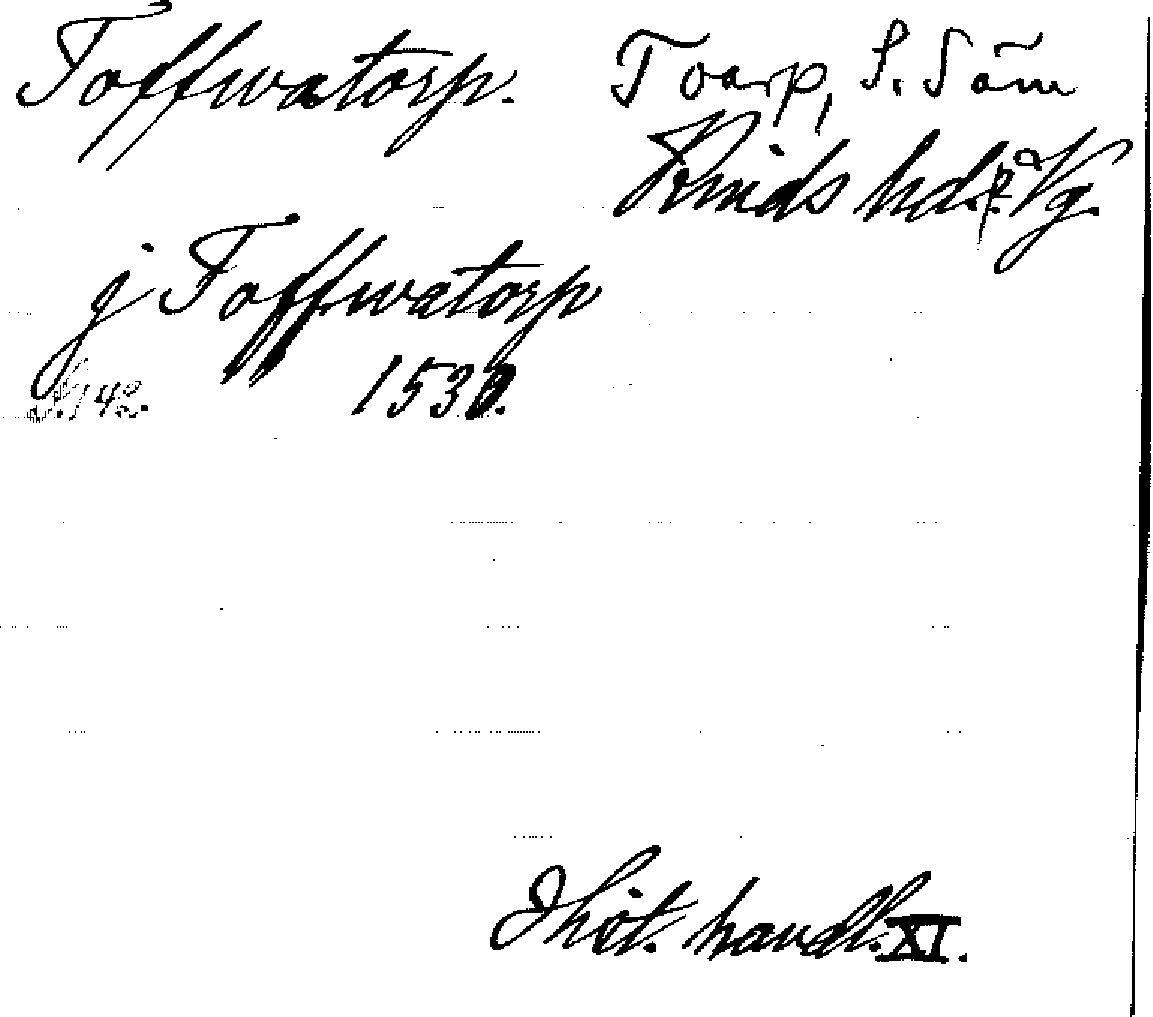 Toffwatorp. Toarp, S. Säm
Kinds hd. Vg.
j Toffwatorp
s. 142. 1530.
Thot. handl. XI.